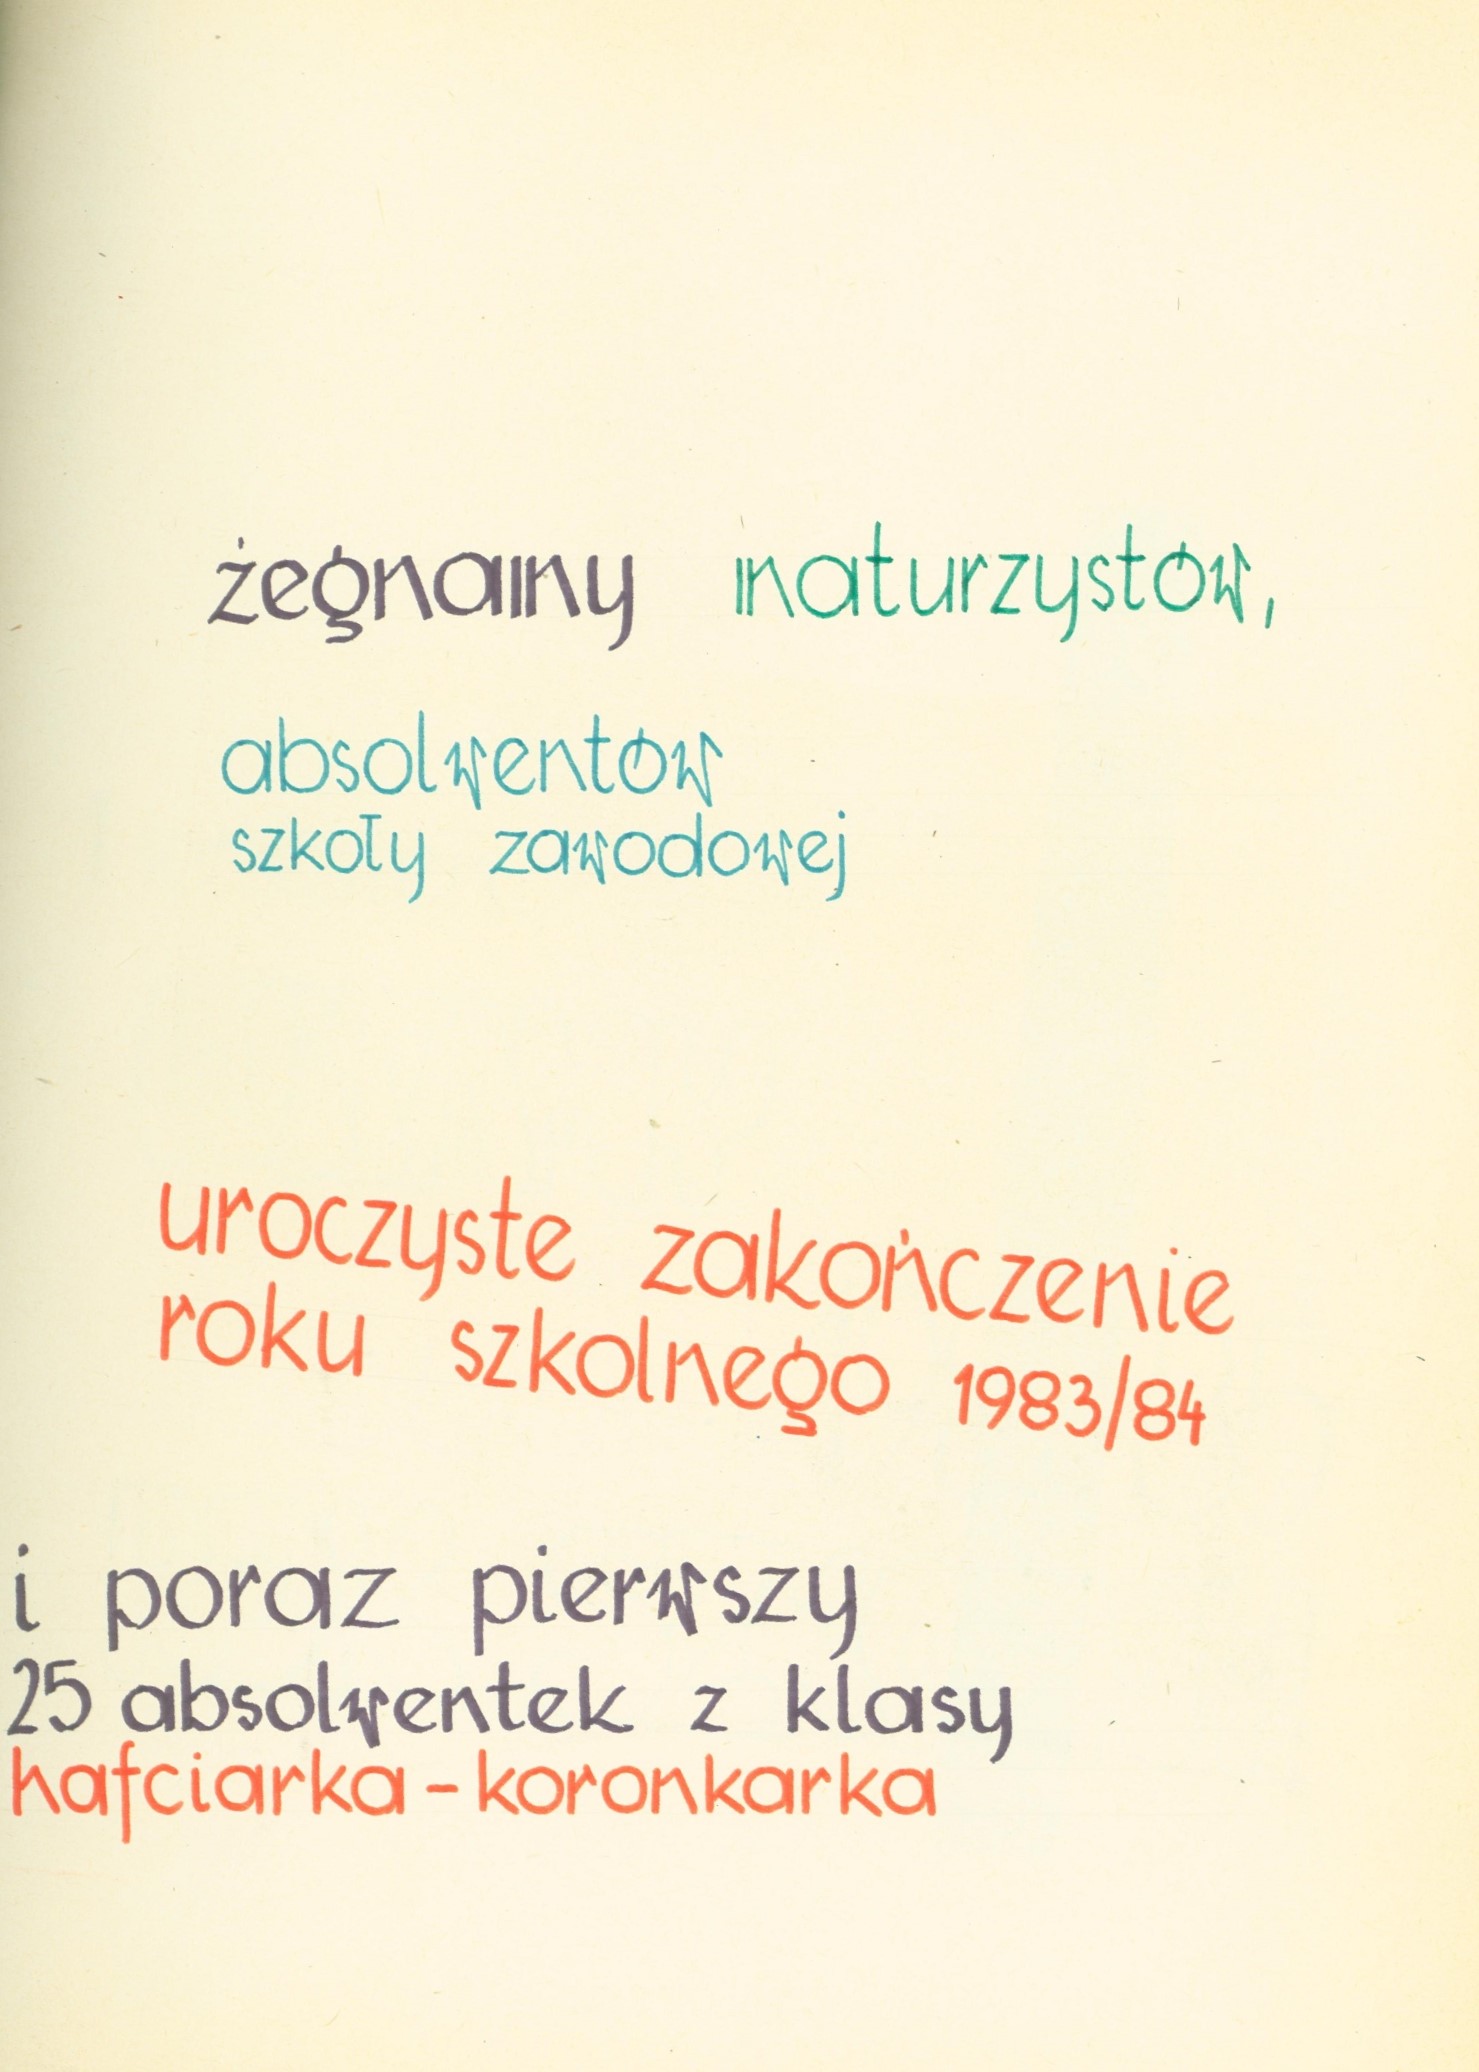 żegnamy maturzystów,
absolwentów
szkoły zawodowej
uroczyste zakończenie
roku szkolnego 1983/84
i poraz pierwszy
25 absolwentek z klasy
hafciarka - koronkarka